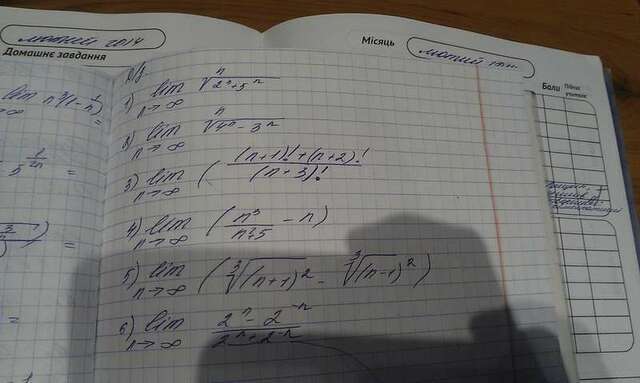 лютий 2014
Домашнє завдання
Місяць
лютий
Бали
Підпис учителя
Д/з
1) lim n→∞ ⁿ√(2ⁿ+3ⁿ)
2) lim n→∞ ⁿ√(4ⁿ-3ⁿ)
3) lim n→∞ ( (n+1)!+(n+2)! / (n+3)!
4) lim n→∞ ( n³ / n²+5 - n)
5) lim n→∞ ( ³√(n+1)² - ³√(n-1)² )
6) lim n→∞ 2ⁿ - 2⁻ⁿ / 2ⁿ + 2⁻ⁿ
lim n³(1-
=
=
=
=